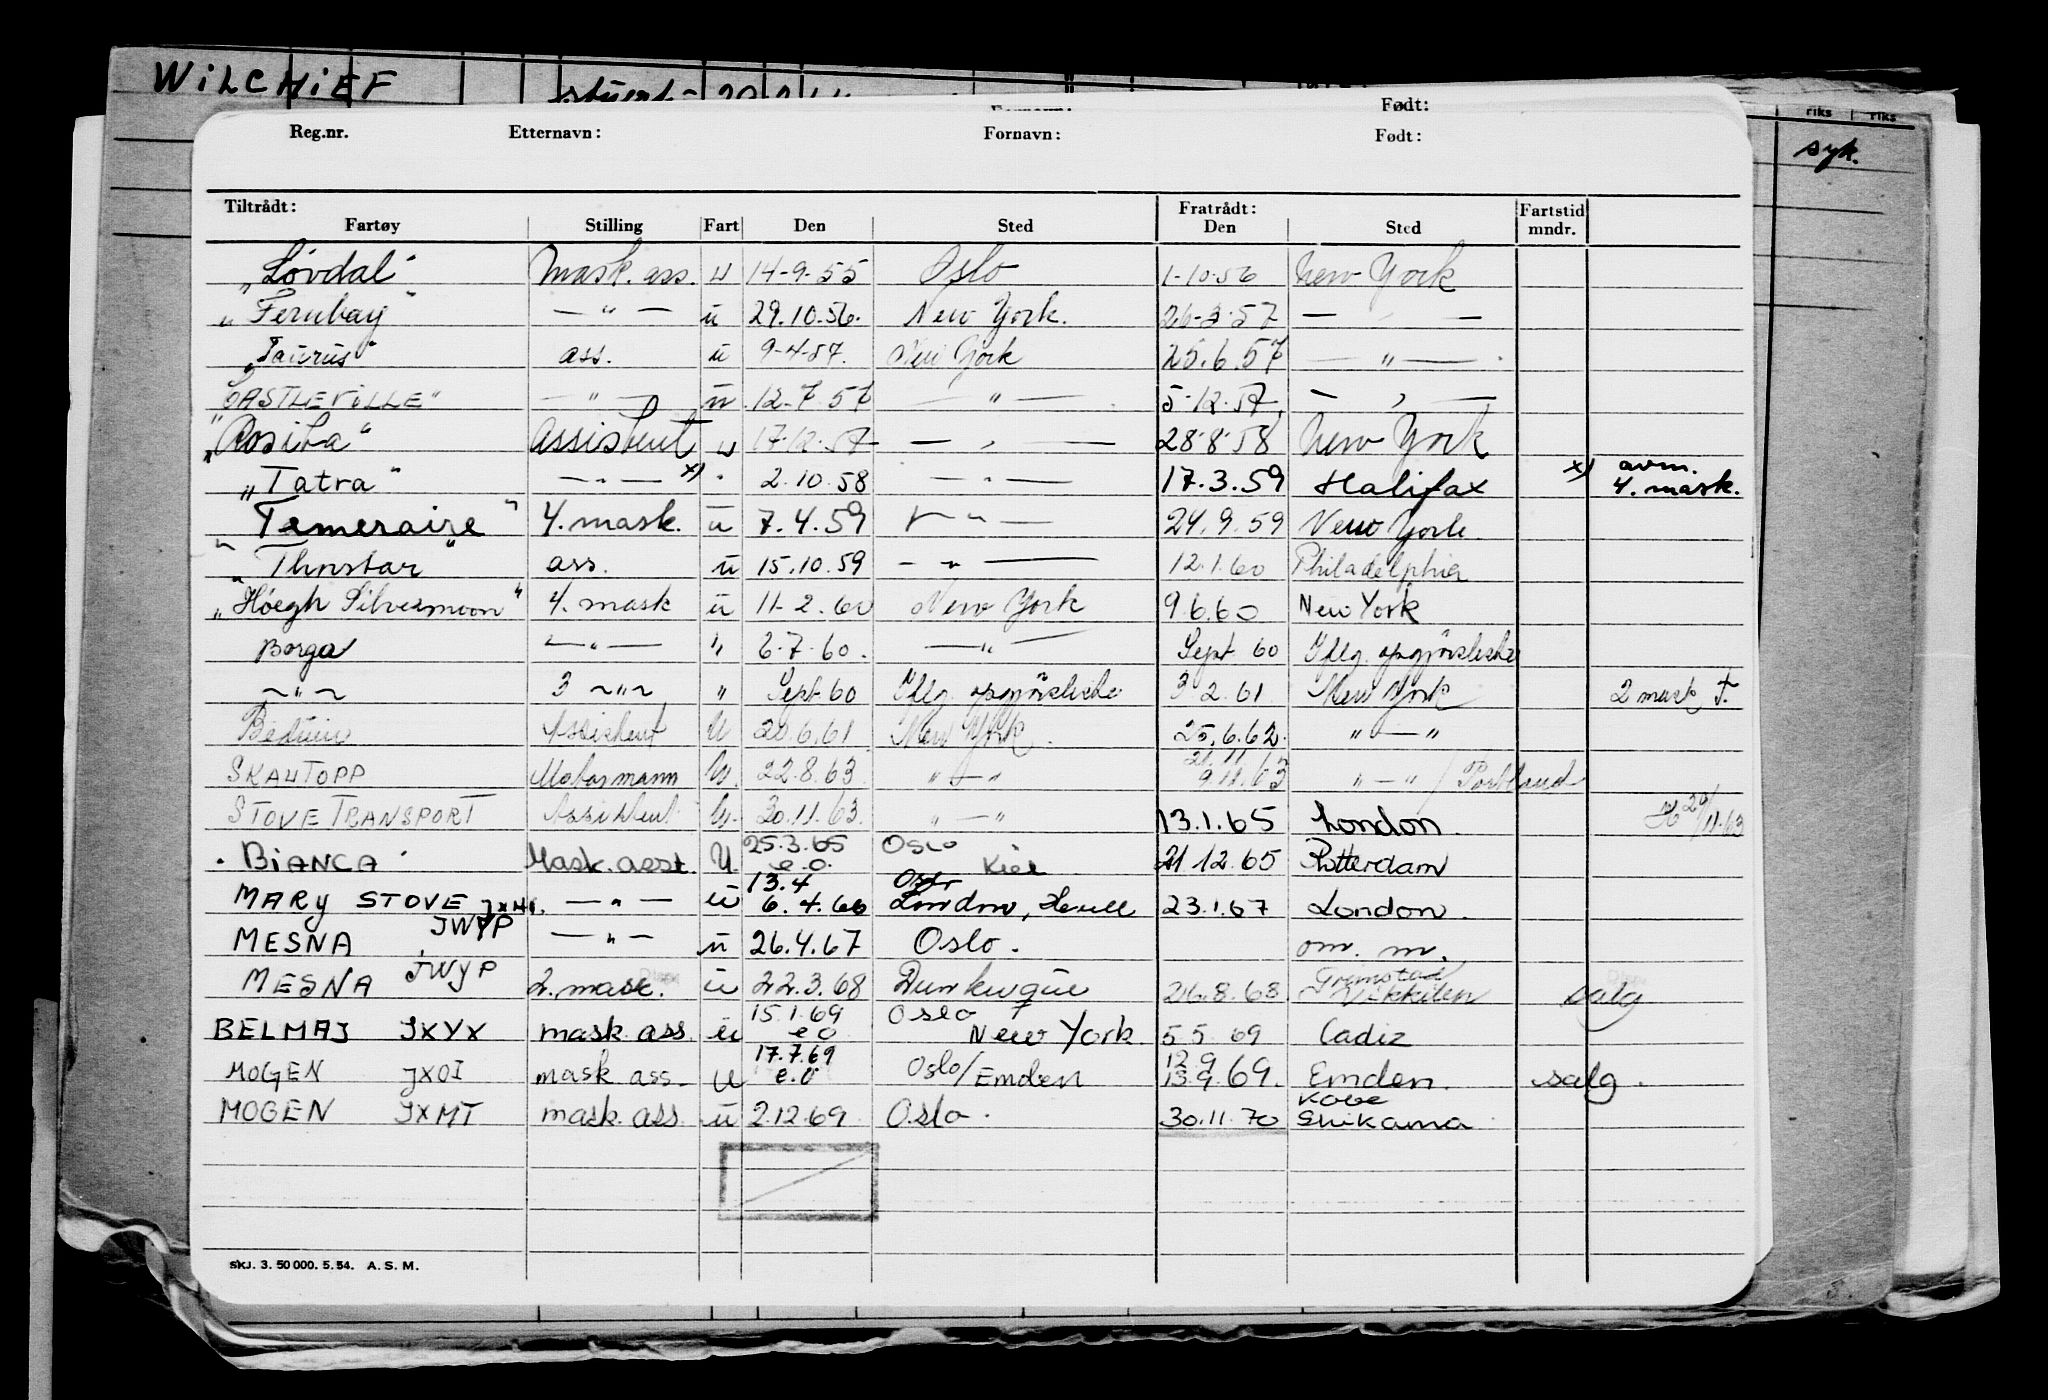 WiLCHiEF
Født:
riks riks
syk.
Reg.nr. Etternavn: Fornavn: Født:
Tiltrådt: Fratrådt: Fartstid
Fartøy Stilling Fart Den Sted Den Sted mndr.
„Løvdal" Mask. ass. u 14-9-55 Oslo 1-10-56 New York
„Fernbay" — " — u 29.10.56. New York. 26-3-57 — " —
„Taurus" ass. u 9-4-57. New York 25.6.57 — " —
CASTLEVILLE" — " — u 12-7-57 — " — 5-12-57 — " —
"Rosita" Assistent u 17-12-57 — " — 28-8-58 New York
„Tatra" — " — x) " 2.10.58 — " — 17.3.59 Halifax x) avm. 4. mask.
„Temeraire" 4. mask. u 7.4.59 — " — 24.9.59 New York.
„Thorstar" ass. u 15.10.59 — " — 12.1.60 Philadelphia
„Höegh Silvermoon" 4. mask u 11-2.60 New York 9.6.60 New York
Borga — " — " 6-7-60. — " — Sept 60 Iflg. opgjörsliste
~ " ~ 3 ~ " ~ " Sept 60 Iflg. opgjörsliste 3 2.61 New York 2 mask
Beduin Assistent U 20.6.61 New York. 25.6.62. " — "
SKAUTOPP Motormann U. 22.8.63 " — " 9.11.63 " — " / Portland
STOVE TRANSPORT Assistent U. 30.11.63. " — " 13.1.65 London. 29/11-63
"BiANCA" Mask. asst. U. 25.3.65 e.o. Oslo Kiel 21 12.65 Rotterdam
MARY STOVE — " — u 13.4 6.4.66 Oslo London, Hull 23.1.67 London.
MESNA JWYP — " — u 26.4.67 Oslo. om. m.
MESNA JWYP 2. mask. u 22.3.68 Dunkerque 26.8.68 Grimstad Vikkilen salg
BELMAJ JXYX mask. ass. u 15.1.69 e o Oslo New York 5 5 69 Cadiz
MOGEN JXOI mask ass. U 17.7.69 e.o Oslo/Emden 12.9 13.9.69. Emden. salg.
MOGEN JXMT mask. ass. u 2.12.69 Oslo. 30.11.70 Kobe Shikama
SKJ. 3. 50 000. 5. 54. A. S. M.